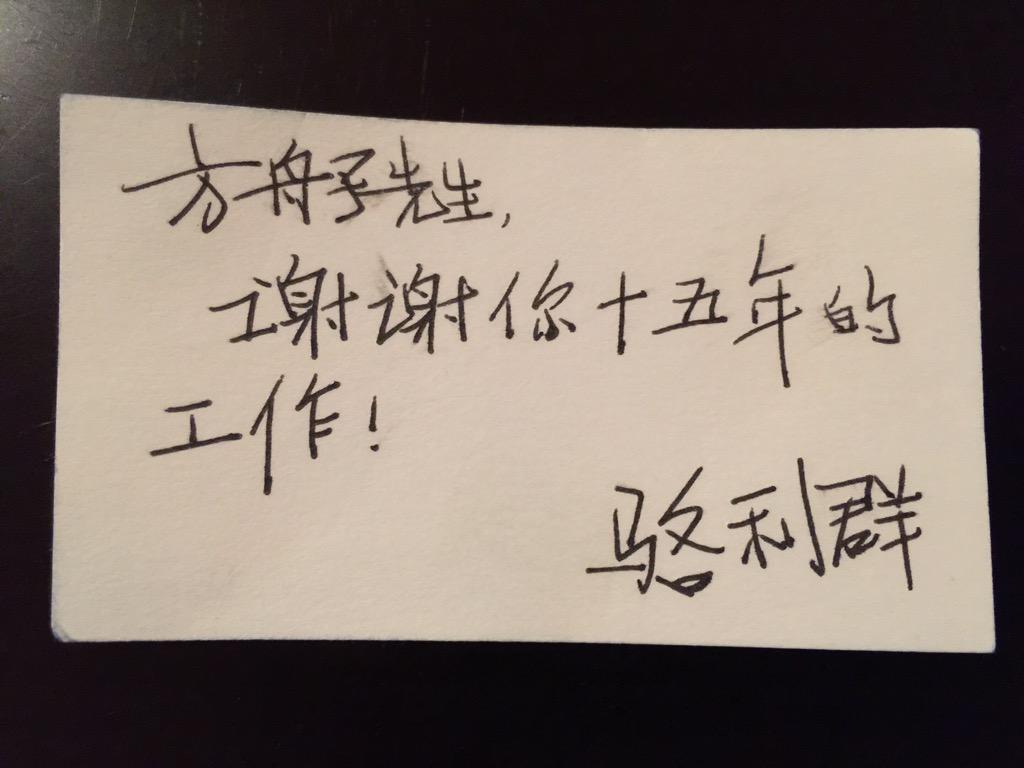 方舟子先生,
谢谢你十五年的
工作!
骆利群